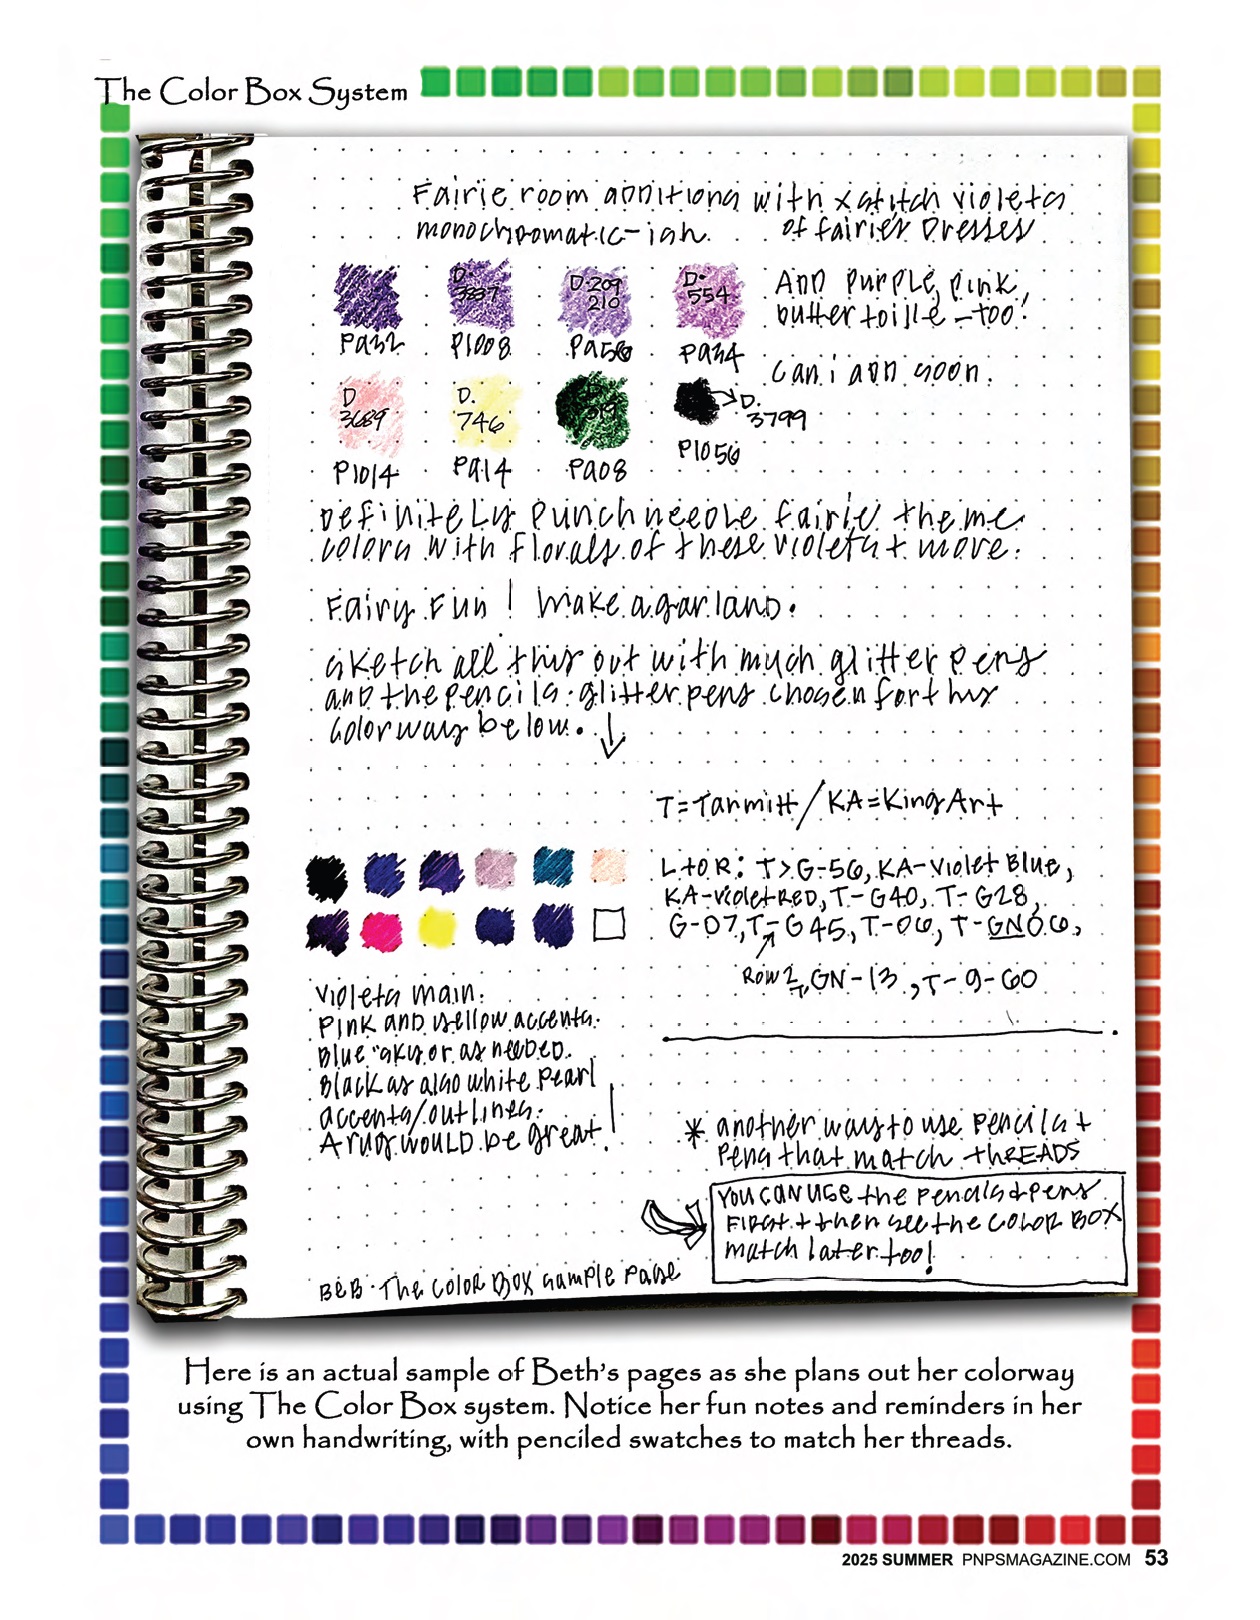 The Color Box System
Fairie room additions with x stitch violets
monochromatic-ish. of fairies Dresses
And purple, pink,
butter toille - too!
Can i add soon.
D. 3837
D. 209 210
D. 554
PA32 P1008 PA56 PA34
D 3689
D. 746
D. 319
D. 3799
P1014 PA14 PA08 P1056
Definitely Punchneedle fairie theme
colors with florals of these violets + more.
Fairy Fun! Make a garland.
Sketch all this out with much glitter pens
and the pencils. glitter pens chosen for this
colorways below. ↓
T=Tanmitt / KA=KingArt
L to R: T>G-56, KA-Violet Blue,
KA-violet Red, T-G40, T-G28,
G-07, T-G45, T-06, T-GN06,
Row 2, GN-13, T-9-60
Violets main.
Pink and yellow accents.
Blue sky or as needed.
Black as also white pearl
accents/outlines.
A rug would be great!
* another way to use pencils +
pens that match THREADS
You can use the pencils + pens
FIRST + then see the COLOR BOX
match later too!
BEB. The Color Box sample page
Here is an actual sample of Beth's pages as she plans out her colorway
using The Color Box system. Notice her fun notes and reminders in her
own handwriting, with penciled swatches to match her threads.
2025 SUMMER PNPSMAGAZINE.COM 53